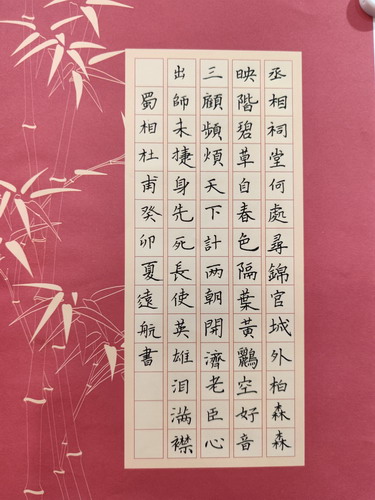 丞相祠堂何處尋錦官城外柏森森
映階碧草自春色隔葉黃鸝空好音
三顧頻煩天下計兩朝開濟老臣心
出師未捷身先死長使英雄泪满襟
蜀相杜甫癸卯夏遠航書